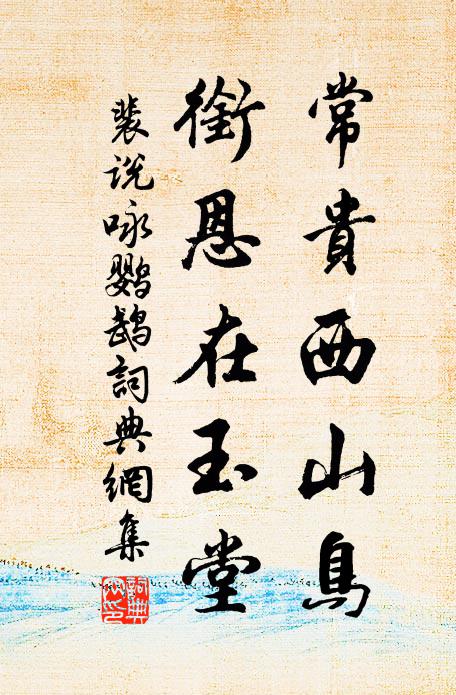 常貴西山鳥
銜恩在玉堂
裴说咏鹦鹉詞典網集